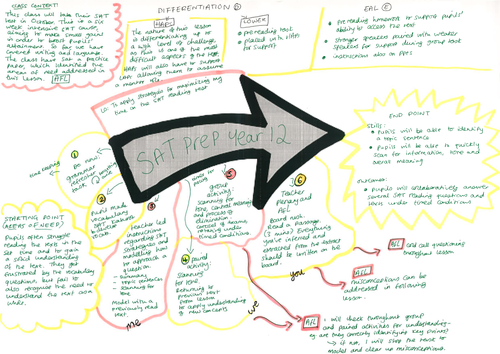 CLASS CONTEXT:
This class will take their SAT
test in October. This is a six
week intensive SAT course,
aiming to make small gains
in order to boost pupils'
attainment. So far we have
covered writing and language.
The class have sat a practice
paper, which identified the
areas of need addressed in
this lesson. AFL
DIFFERENTIATION
HAPs
The nature of this lesson
is differentiating up to
a high level of challenge
as this is one of the most
difficult aspects of the test.
HAPs will also have to support
LAPs allowing them to assume
a mentor role.
LOWER
pre-reading tool
placed with HAPs
for support
EAL
Pre-reading homework to support pupils'
ability to access the text
Stronger speakers paired with weaker
speakers for support during group task
Instructions also on PPTs
LO: To apply strategies for maximising my
time on the SAT reading test
SAT PREP YEAR 12
END POINT
Skills:
Pupils will be able to identify
a topic sentence
Pupils will be able to quickly
scan for information, tone and
overall meaning
Outcome:
Pupils will collaboratively answer
several SAT reading questions and
texts under timed conditions
STARTING POINT
(AREAS OF NEED)
Pupils often struggle
reading the texts in the
SAT time and to gain
a strict understanding
of the text. They are
frustrated by the vocabulary
questions, but fail to
also recognise the need to
understand the text as a
whole.
1
Do now:
grammar
refresher
2
Pupils made
vocabulary
3
Teacher led
instructions
regarding SAT
strategies and
modelling how
to approach a
question.
- Summarising
- topic sentences
- Scanning for
tone
Model with a
previously read
text.
4
paired
activity:
Scanning for
tone
Returning to
previous text from
lesson
to apply understanding
of new concepts
5
group
activity:
scanning for
tone, context meaning
and process of
elimination
carousel of texts
rotating under
timed conditions
6
Teacher
plenary and
AFL
board rush
Read a passage
(1 min) Everything
you've inferred and
extracted from the text
should be written on the
board.
me
we
you
AFL cold call questioning
throughout lesson
AFL misconceptions can be
addressed in following
lesson
AFL I will check throughout group
and paired activities for understanding-
eg are they correctly identifying key points?
↳ if not, I will stop the task to
model and clear up misconceptions.